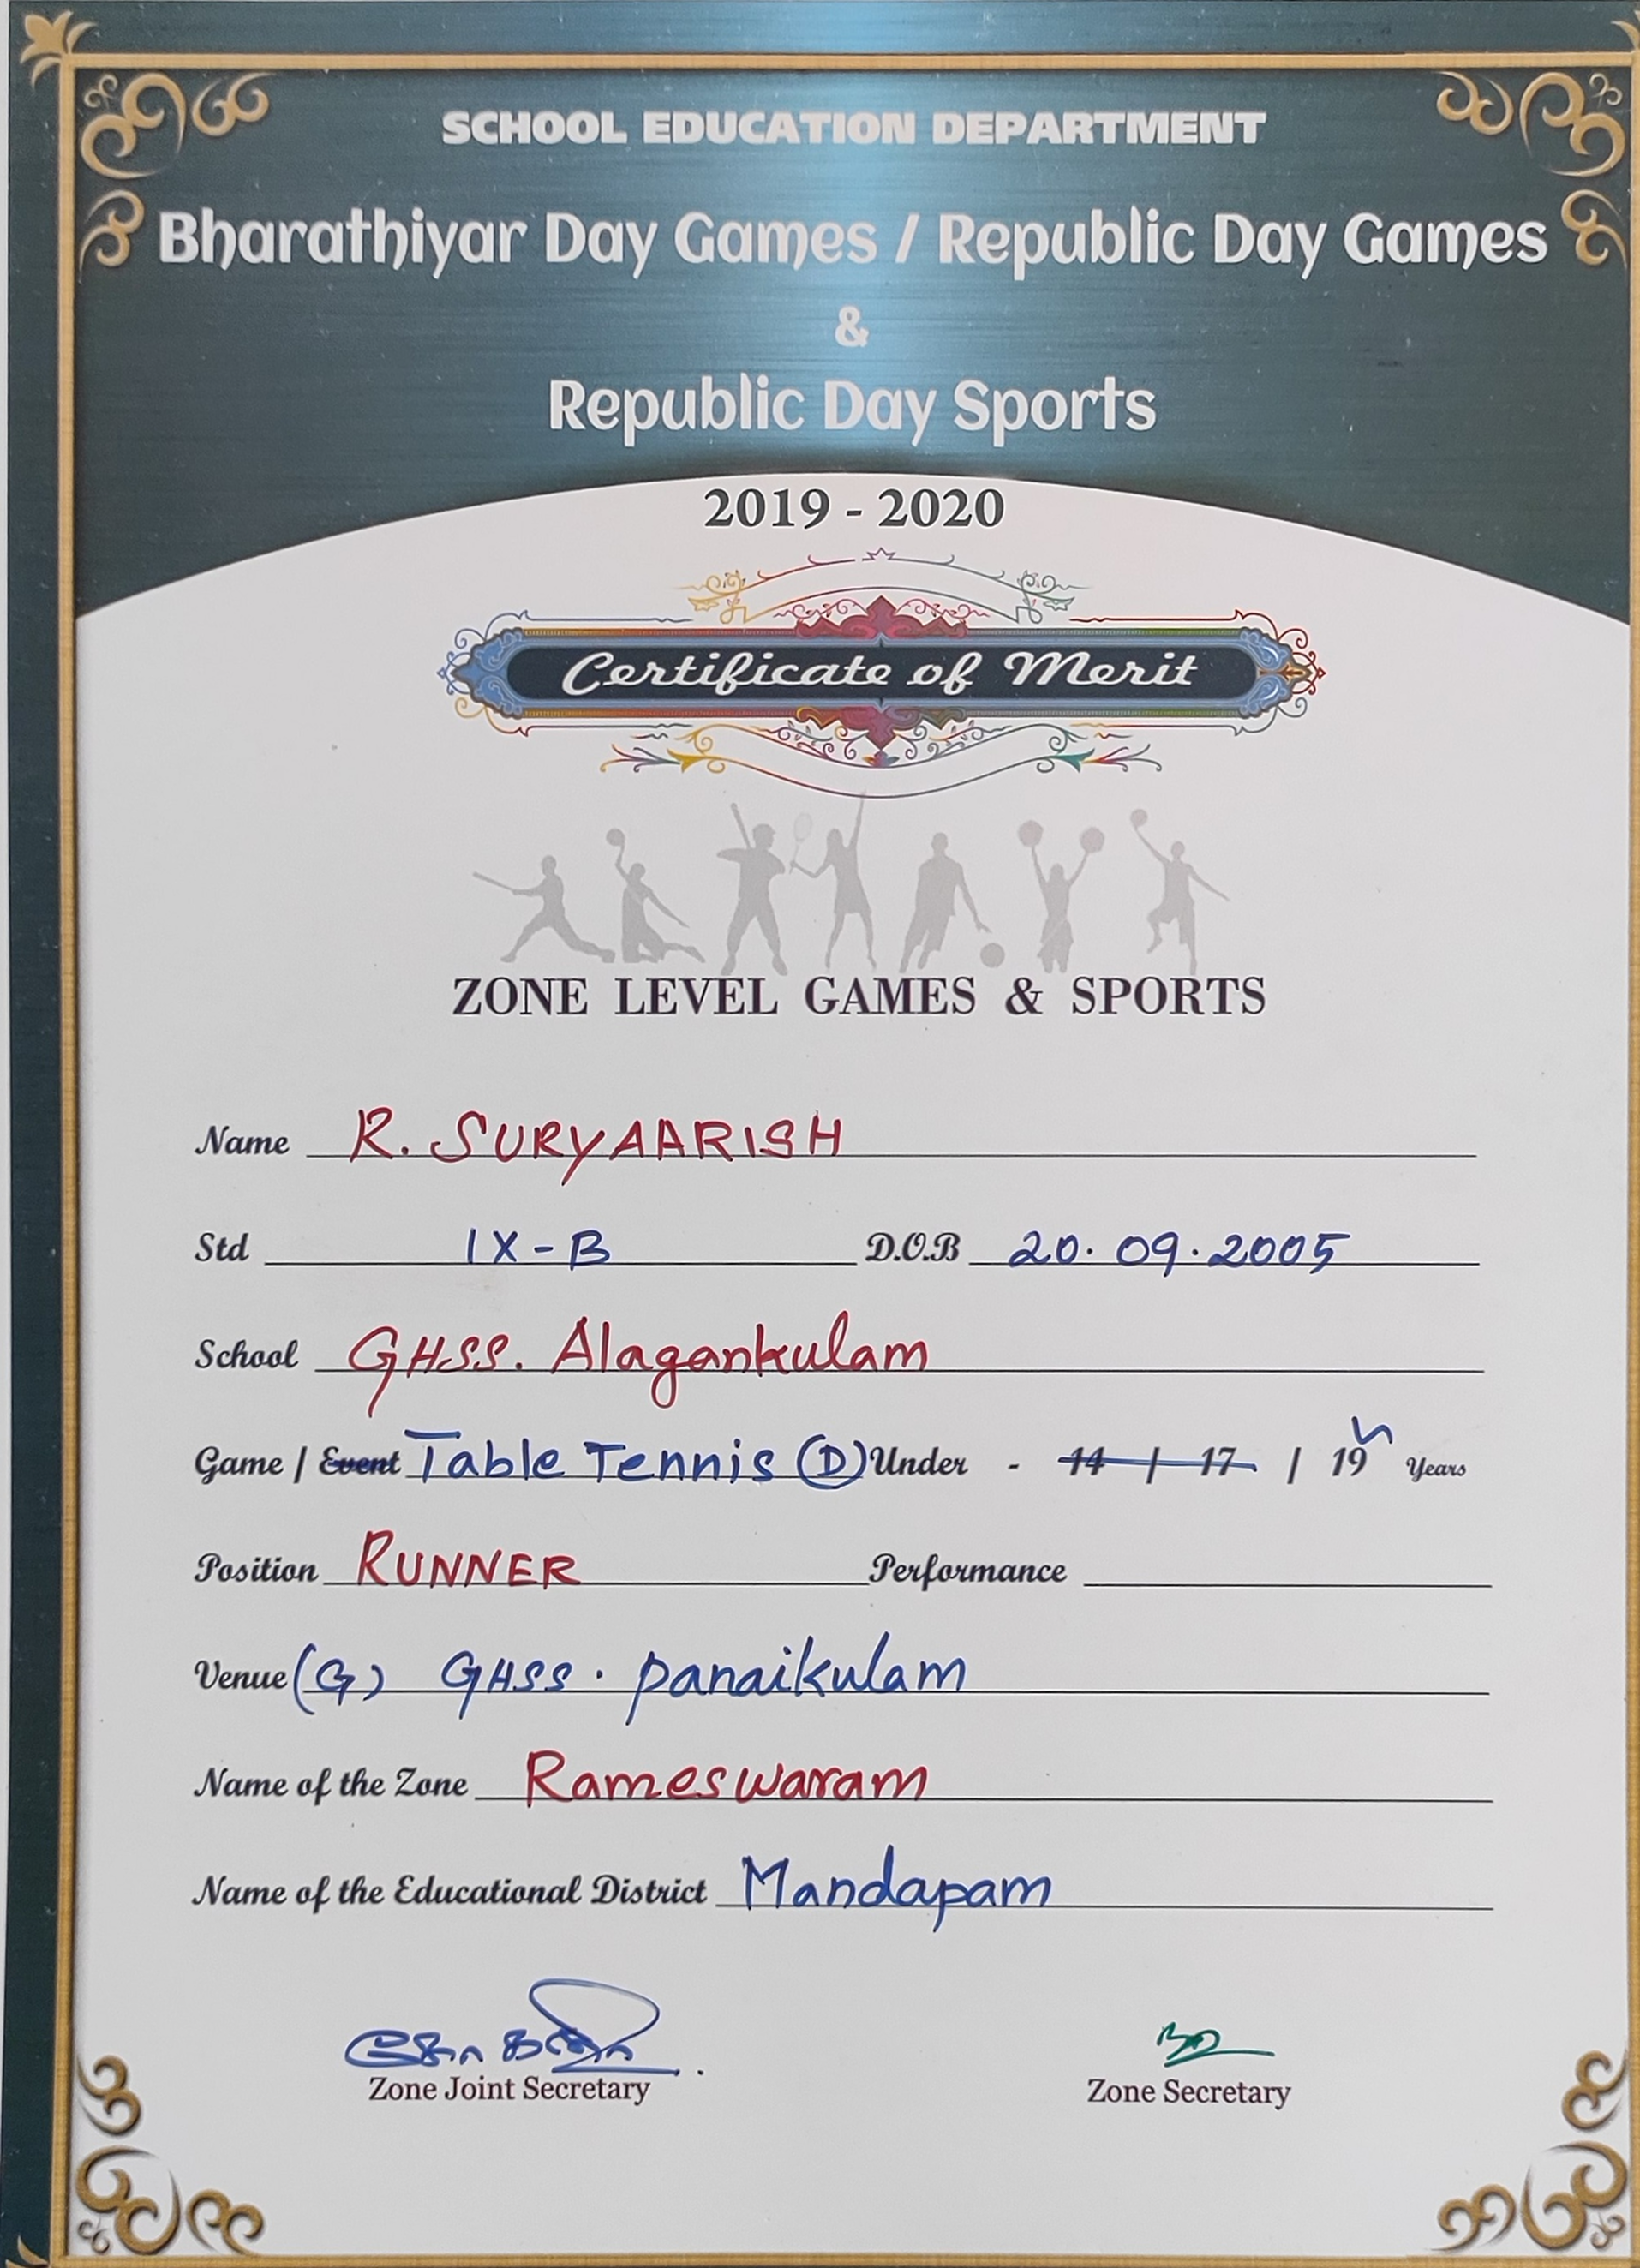 SCHOOL EDUCATION DEPARTMENT
Bharathiyar Day Games / Republic Day Games
&
Republic Day Sports
2019 - 2020
Certificate of Merit
ZONE LEVEL GAMES & SPORTS
Name R. SURYAARISH
Std IX-B D.O.B 20.09.2005
School GHSS. Alagankulam
Game / Event Table Tennis (D) Under - 14 / 17 / 19 Years
Position RUNNER Performance
Venue (G) GHSS. Panaikulam
Name of the Zone Rameswaram
Name of the Educational District Mandapam
Zone Joint Secretary Zone Secretary